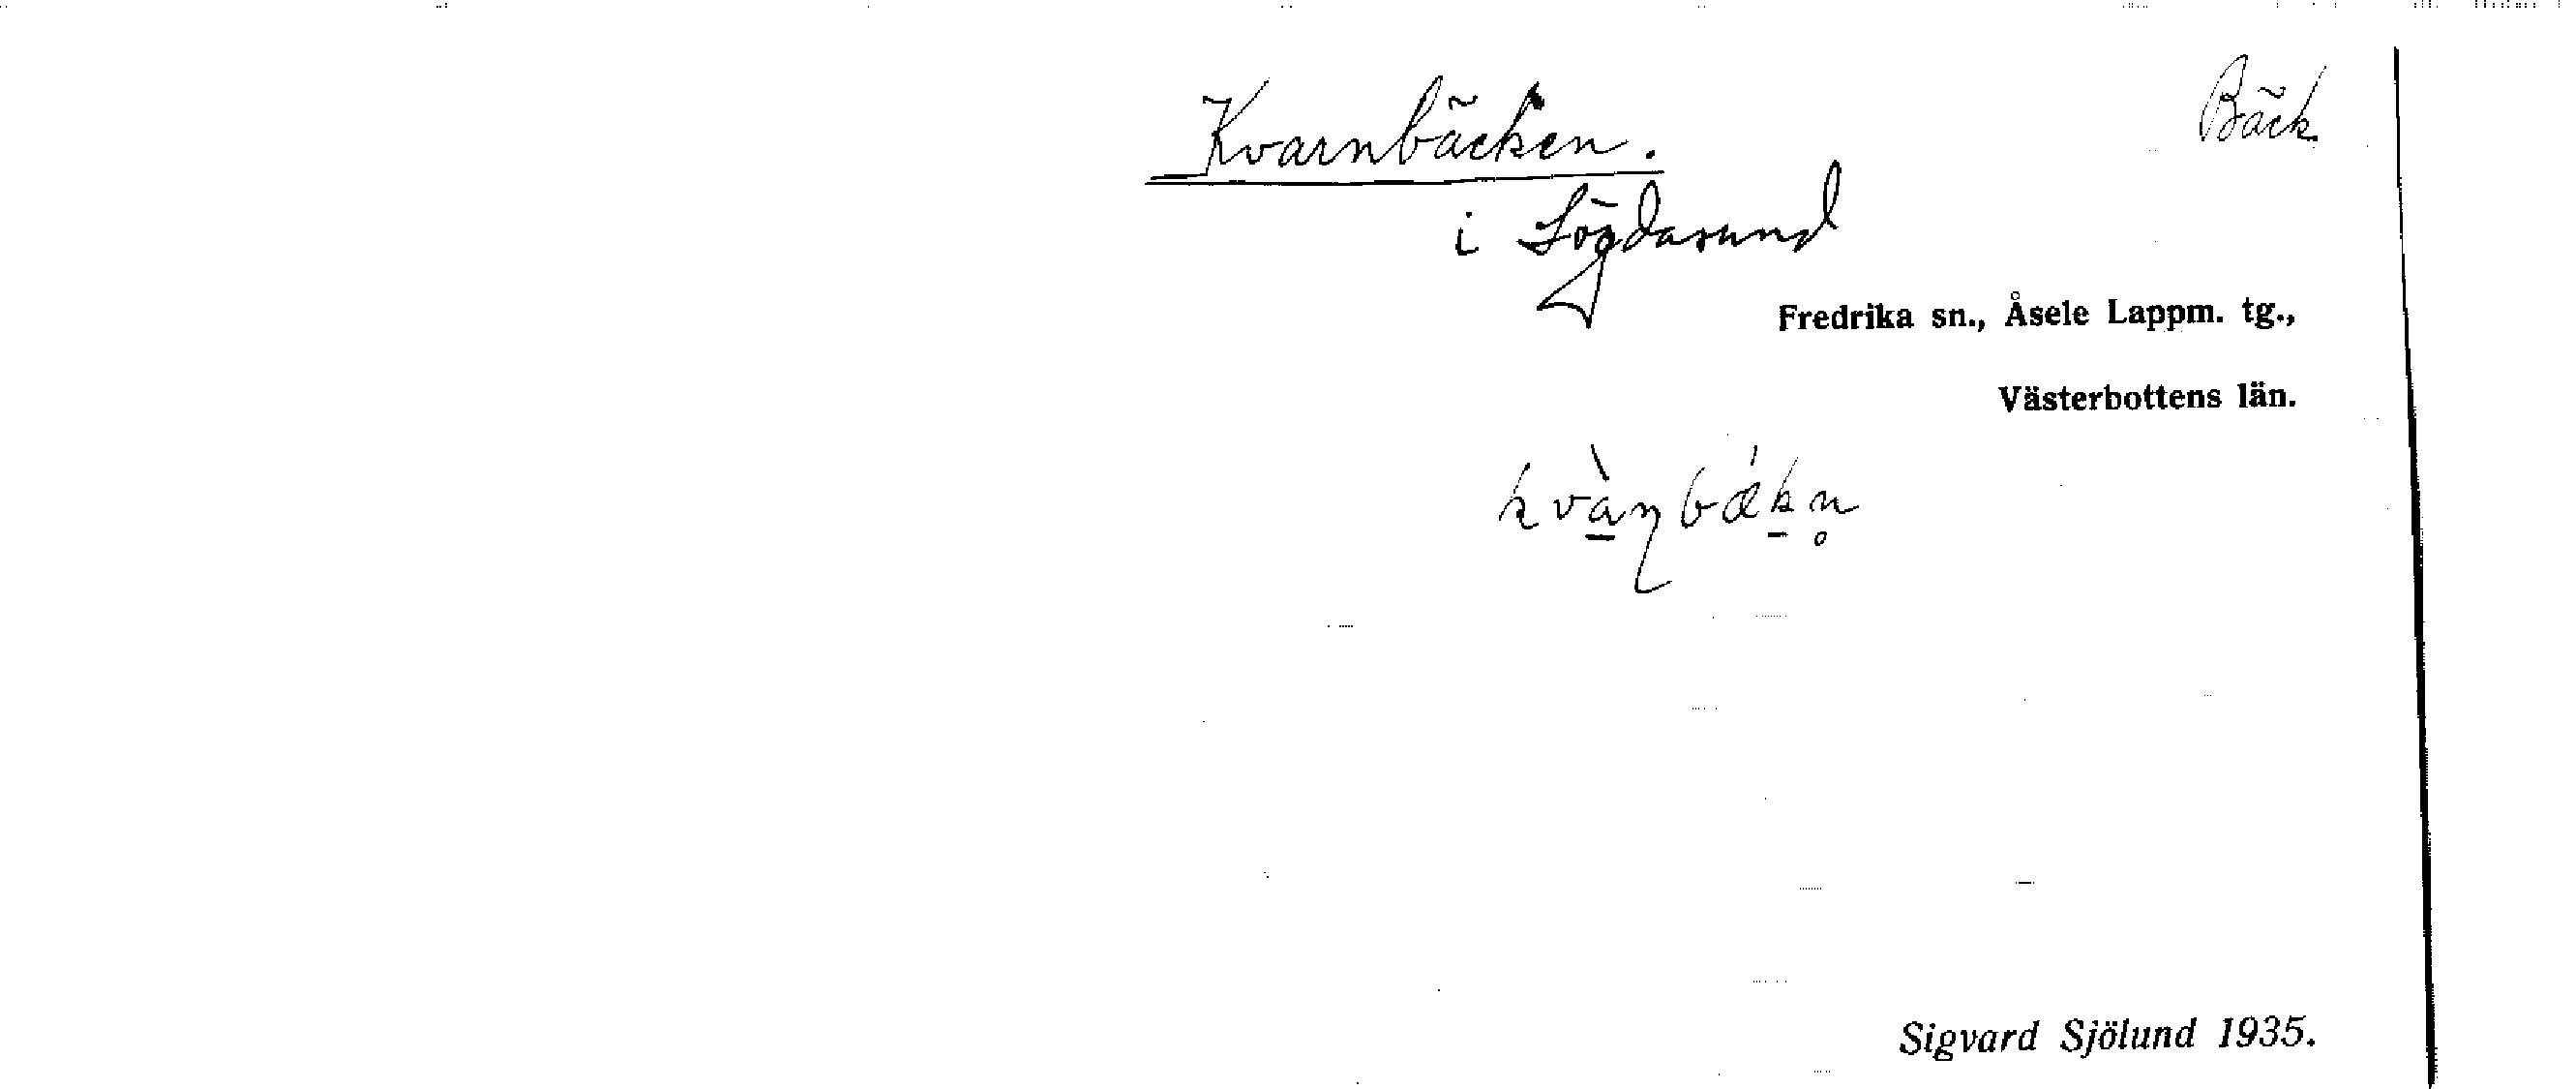 Kvarnbäcken.
Bäck
i Lögdasund
Fredrika sn., Åsele Lappm. tg.,
Västerbottens län.
kvàɳbǽkn̥
Sigvard Sjölund 1935.